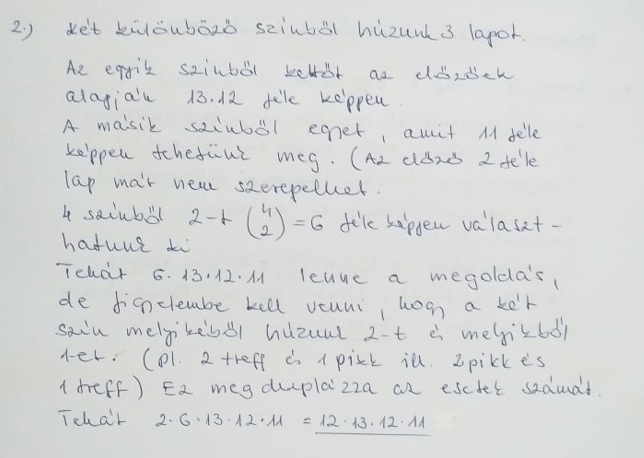 2.) Két különböző színből húzunk 3 lapot.
Az egyik színből kettőt az előzőek
alapján 13·12 féle képpen.
A másik színből egyet, amit 11 féle
képpen tehetünk meg. (Az előző 2 féle
lap már nem szerepelhet.
4 színből 2-t (4 2) = 6 féle képpen választ-
hatunk ki
Tehát 6·13·12·11 lenne a megoldás,
de figyelembe kell venni, hogy a két
szín melyikéből húzunk 2-t és melyikből
1-et. (pl. 2 treff és 1 pikk ill. 2 pikk és
1 treff) Ez megduplázza az esetek számát.
Tehát 2·6·13·12·11 = 12·13·12·11